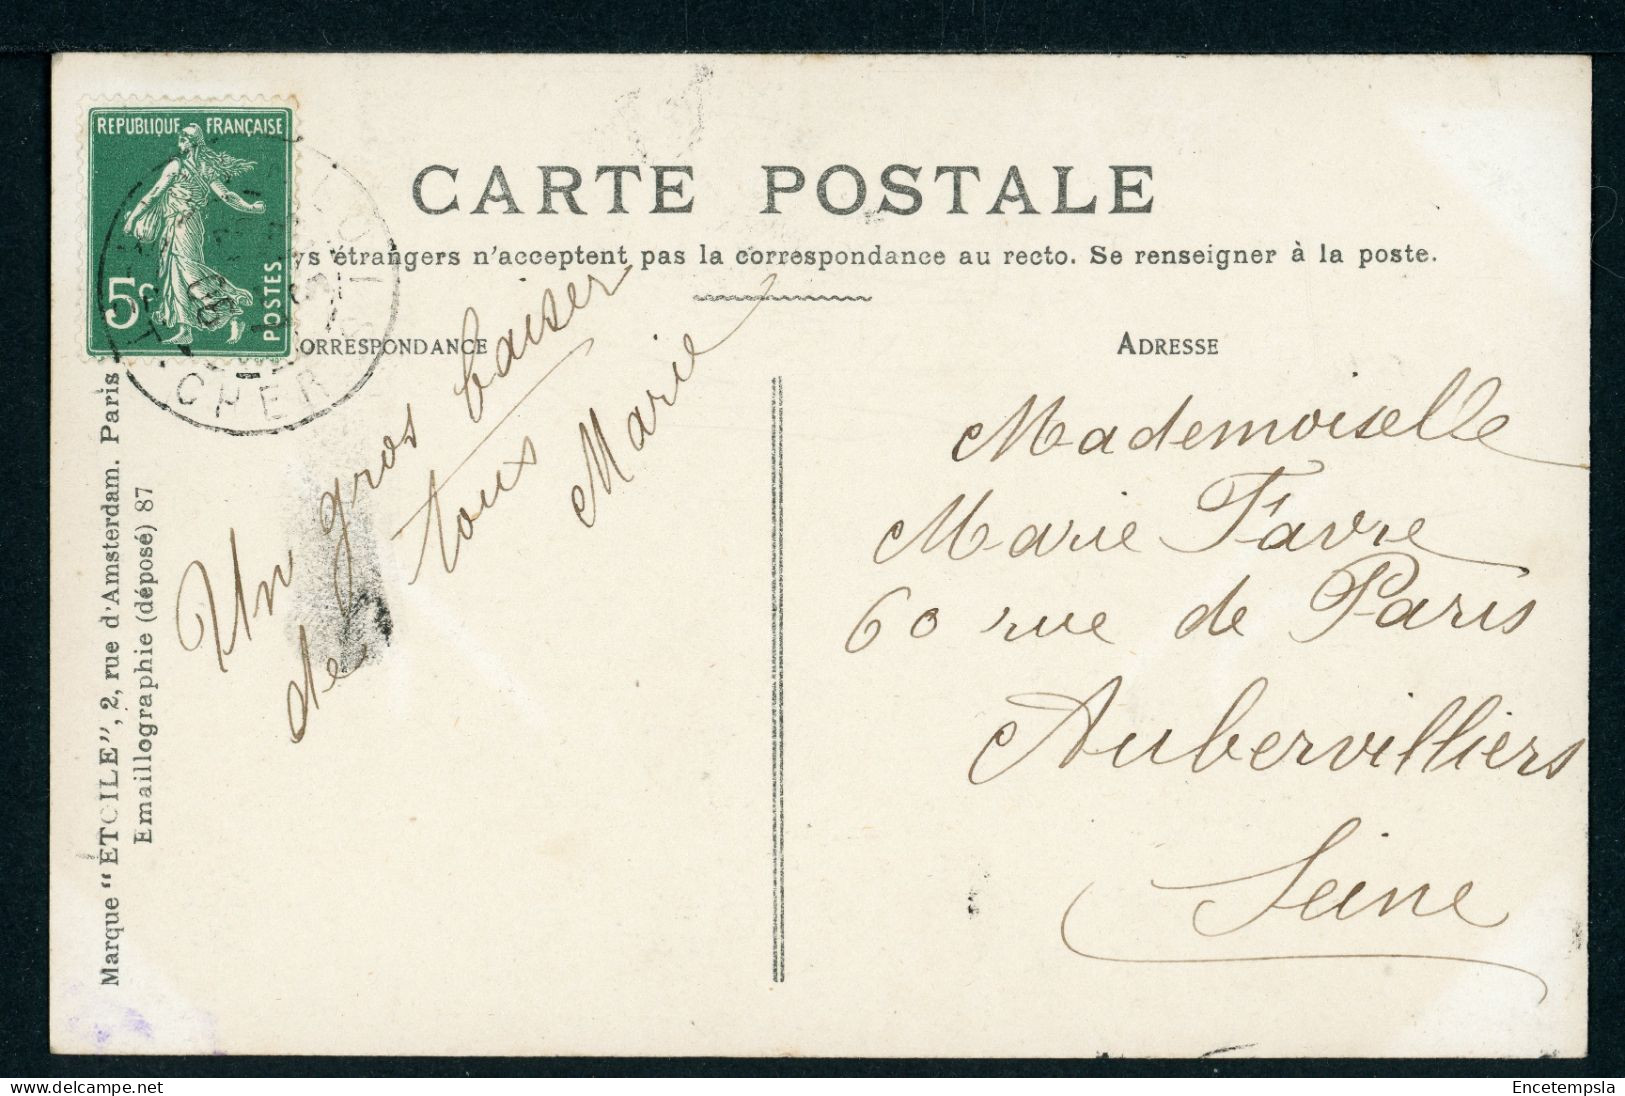 CARTE POSTALE
ys étrangers n'acceptent pas la correspondance au recto. Se renseigner à la poste.
REPUBLIQUE FRANÇAISE
5c
POSTES
CHER
ORRESPONDANCE
Un gros baiser
de tous
Marie
ADRESSE
Mademoiselle
Marie Favre
60 rue de Paris
Aubervilliers
Seine
Marque "ETOILE", 2, rue d'Amsterdam. Paris
Emaillographie (déposé) 87
Encetempsla